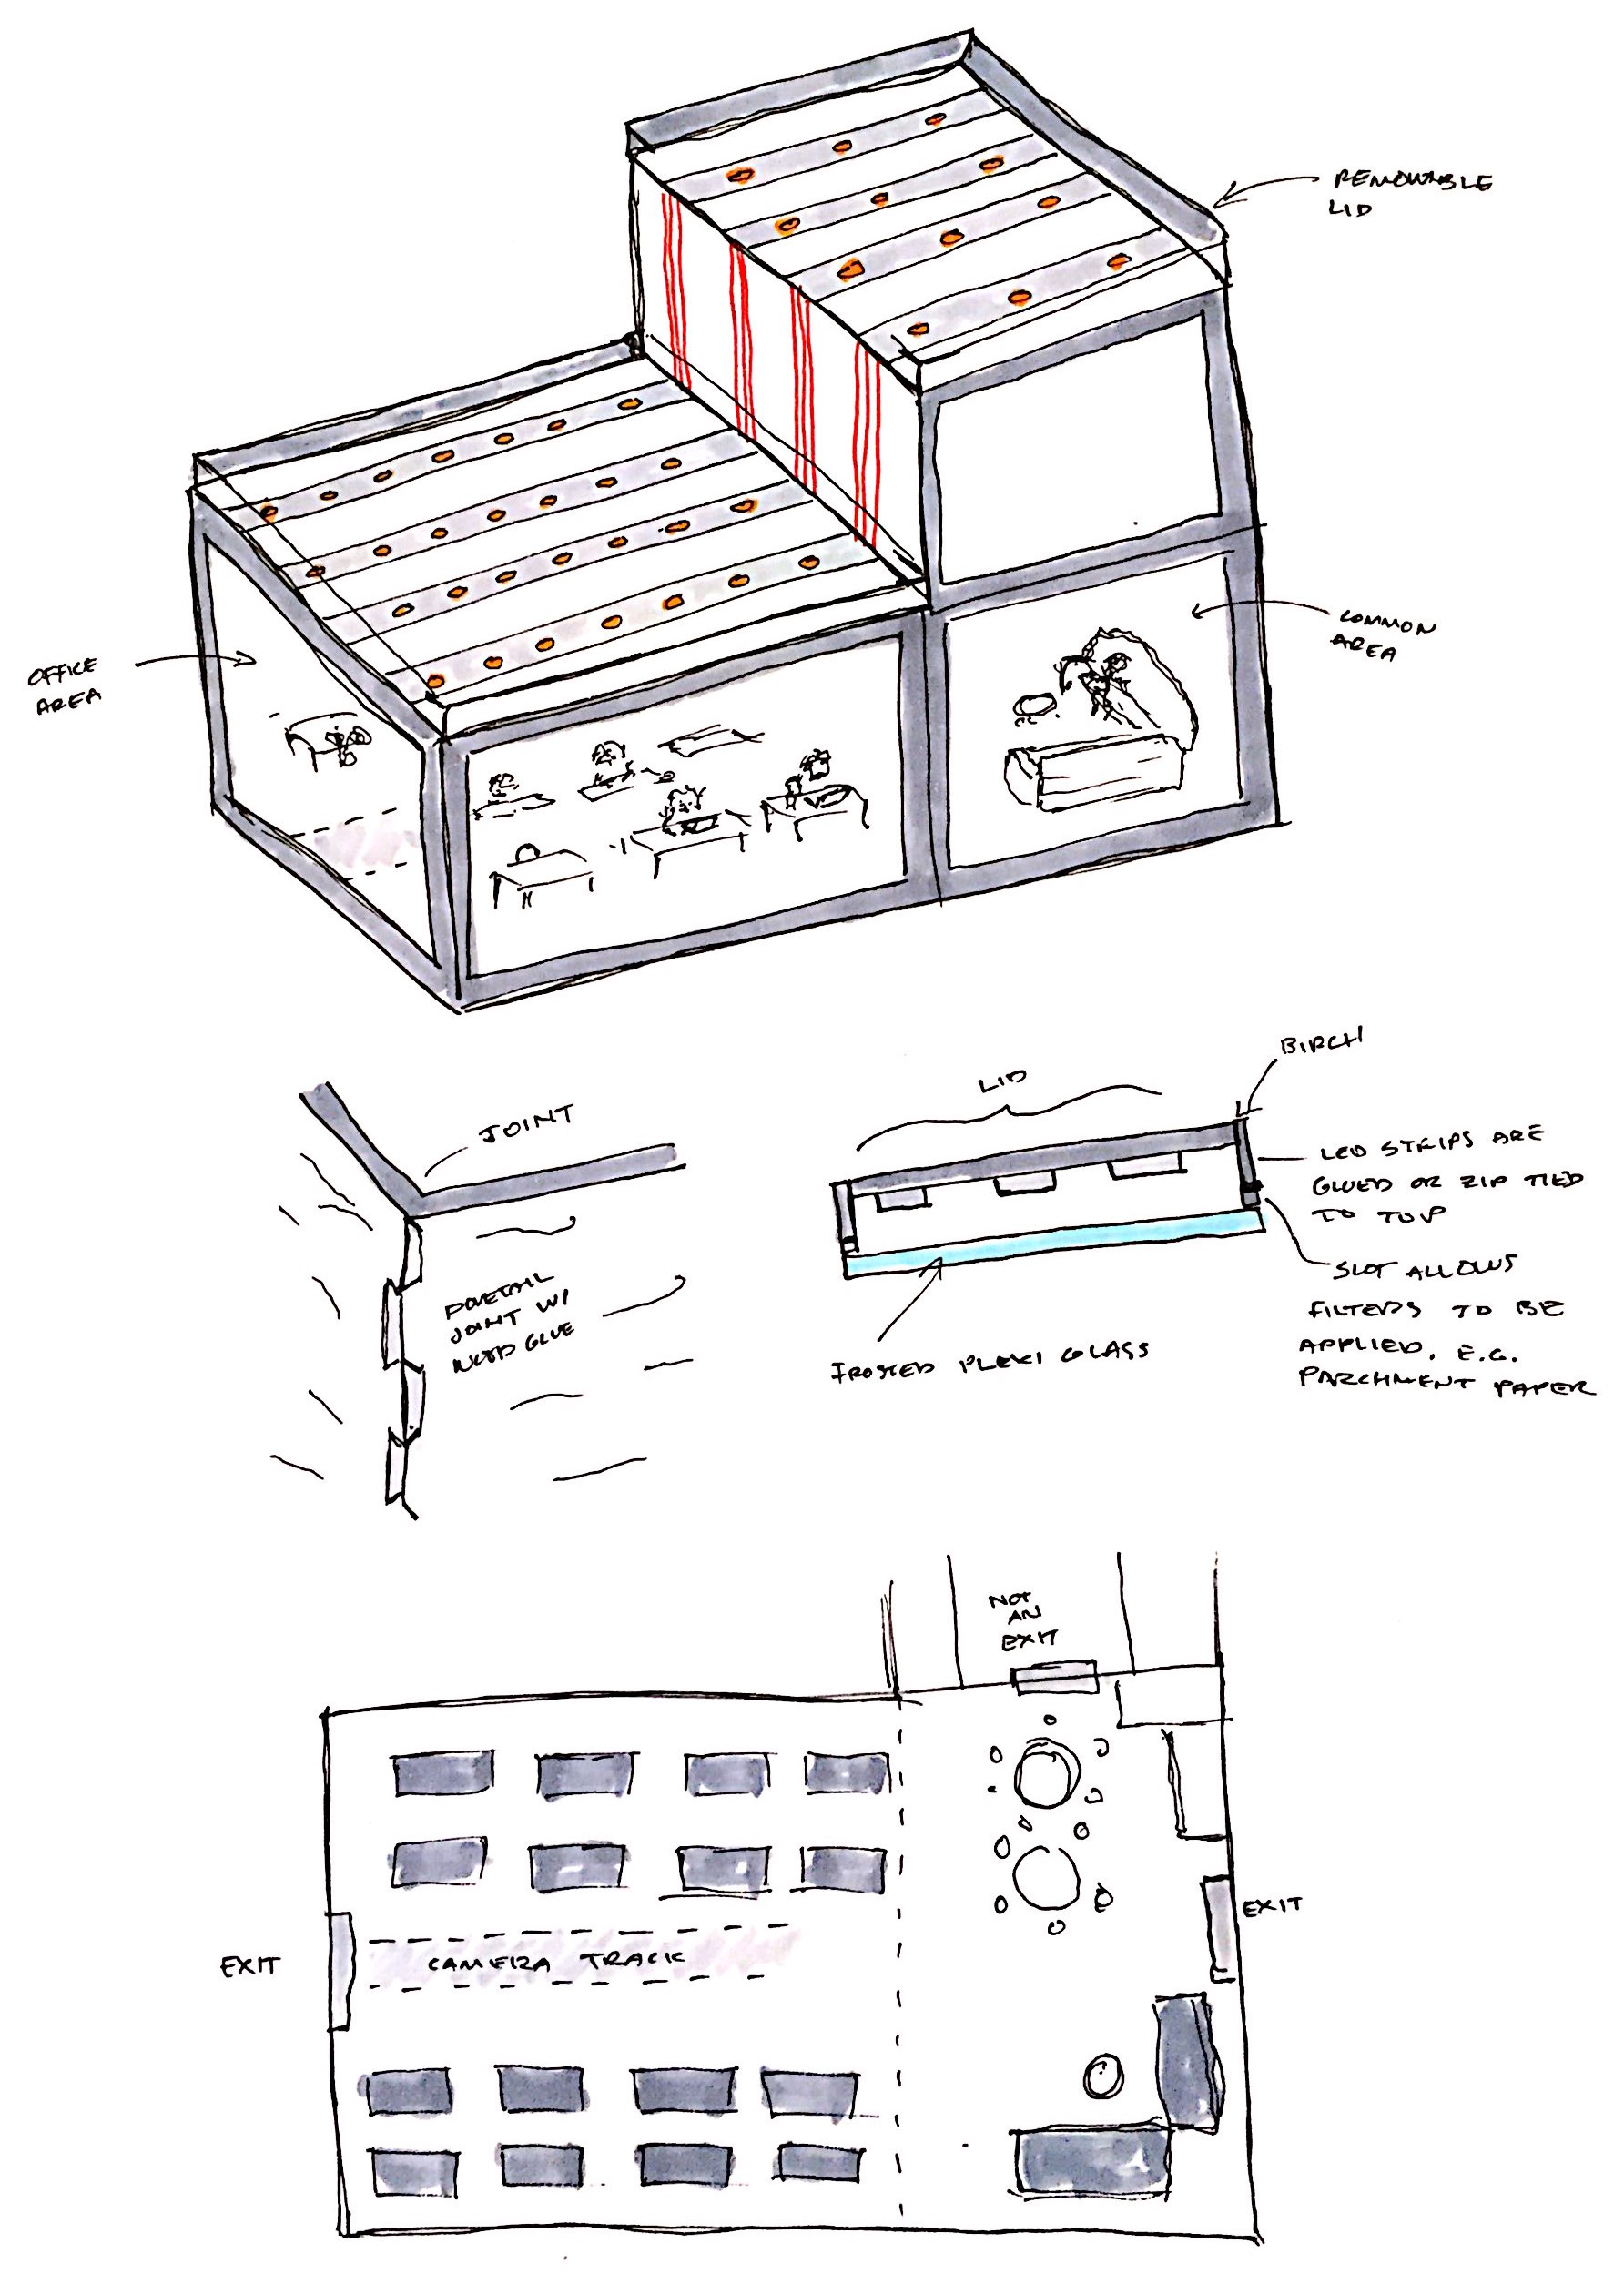 REMOVABLE
LID
OFFICE
AREA
COMMON
AREA
JOINT
DOVETAIL
JOINT W/
WOOD GLUE
LID
BIRCH
LED STRIPS ARE
GLUED OR ZIP TIED
TO TOP
SLOT ALLOWS
FILTERS TO BE
APPLIED. E.G.
PARCHMENT PAPER
FROSTED PLEXI GLASS
NOT
AN
EXIT
EXIT
CAMERA TRACK
EXIT